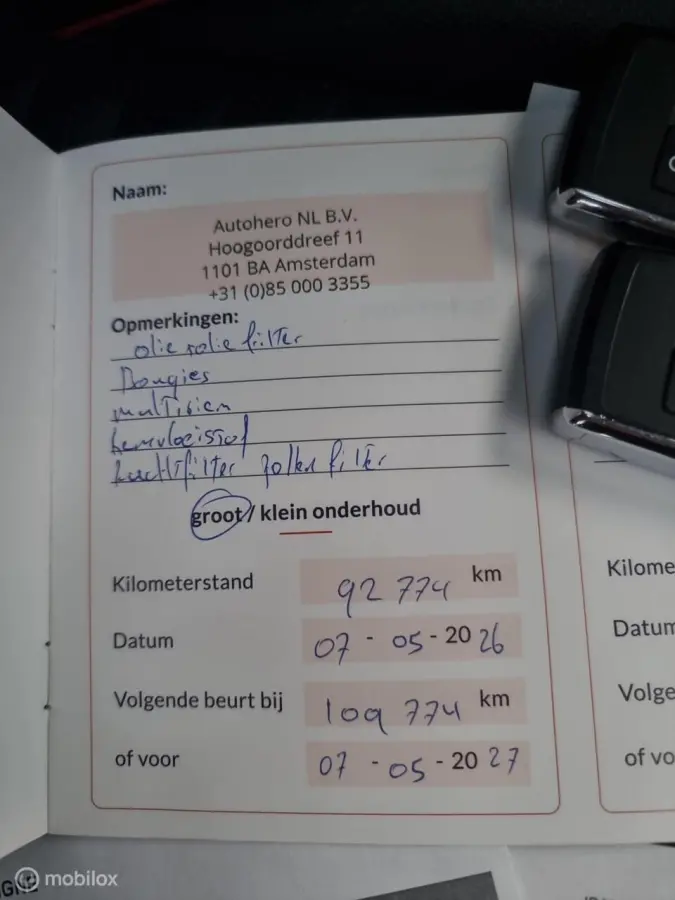 Naam:
Autohero NL B.V.
Hoogoorddreef 11
1101 BA Amsterdam
+31 (0)85 000 3355
Opmerkingen:
olie olie filter
Bougies
multirien
remvloeistof
luchtfilter pollen filter
groot / klein onderhoud
Kilometerstand 92 774 km
Datum 07 - 05 - 2026
Volgende beurt bij 109 774 km
of voor 07 - 05 - 2027
Kilome
Datum
Volge
of vo
mobilox